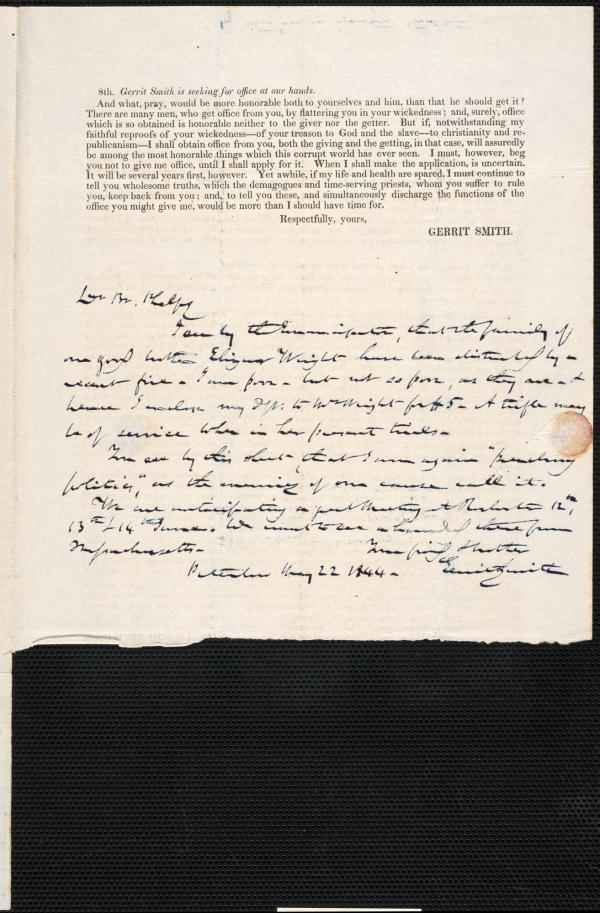 8th. Gerrit Smith is seeking for office at our hands.
And what, pray, would be more honorable both to yourselves and him, than that he should get it?
There are many men, who get office from you, by flattering you in your wickedness; and, surely, office
which is so obtained is honorable neither to the giver nor the getter. But if, notwithstanding my
faithful reproofs of your wickedness—of your treason to God and the slave—to christianity and re-
publicanism—I shall obtain office from you, both the giving and the getting, in that case, will assuredly
be among the most honorable things which this corrupt world has ever seen. I must, however, beg
you not to give me office, until I shall apply for it. When I shall make the application, is uncertain.
It will be several years first, however. Yet awhile, if my life and health are spared, I must continue to
tell you wholesome truths, which the demagogues and time-serving priests, whom you suffer to rule
you, keep back from you; and, to tell you these, and simultaneously discharge the functions of the
office you might give me, would be more than I should have time for.
Respectfully, yours,
GERRIT SMITH.
Dear Br. Phelps
I see by the Emancipator, that the family of
our good brother Elizur Wright have been disturbed by a
recent fire - I am poor - but not so poor, as they are - &
hence I enclose my dft. to Mr Wright for $5 - A trifle may
be of service to her in her present trials -
You see by this sheet that I am again "preaching
politics", as the enemies of our cause call it.
We are anticipating a great Meeting at Rochester 12th,
13th & 14th June. We want to see a hundred there from
Massachusetts - Your friend & brother
Peterboro May 22 1844 - Gerrit Smith